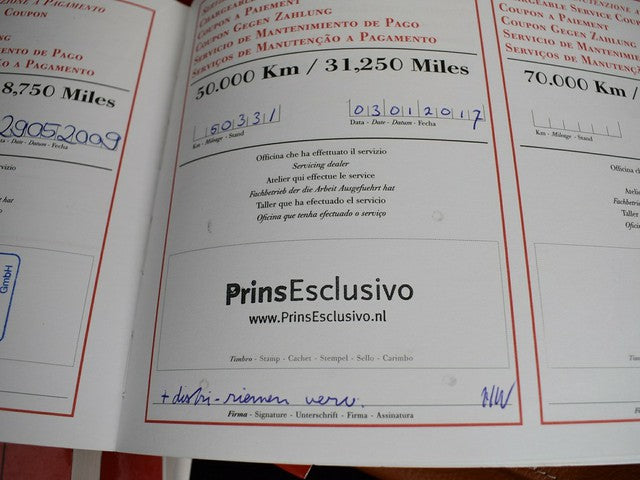 NE A PAGAMENTO
COUPON
NTO DE PAGO
A PAGAMENTO
8,750 Miles
29052009
Data - Date - Datum - Fecha
GmbH
CHARGEABLE
COUPON A PAIEMENT
COUPON GEGEN ZAHLUNG
SERVICIO DE MANTENIMIENTO DE PAGO
SERVIÇOS DE MANUTENÇÃO A PAGAMENTO
50.000 Km / 31,250 Miles
50331
03012017
Km - Mileage - Stand
Data - Date - Datum - Fecha
Officina che ha effettuato il servizio
Servicing dealer
Atelier qui effectue le service
Fachbetrieb der die Arbeit Ausgefuehrt hat
Taller que ha efectuado el servicio
Oficina que tenha efectuado o serviço
PrinsEsclusivo
www.PrinsEsclusivo.nl
Timbro - Stamp - Cachet - Stempel - Sello - Carimbo
+ distri-riemen verv.
Firma - Signature - Unterschrift - Firma - Assinatura
CHARGEABLE SERVICE COU
COUPON A PAIEMENT
COUPON GEGEN ZAHLUN
SERVICIO DE MANTENIMI
SERVIÇOS DE MANUTENÇ
70.000 Km /
Km - Mileage - Stand
Officina ch
Servi
Atelier
Fachbetrieb
Taller qu
Oficina